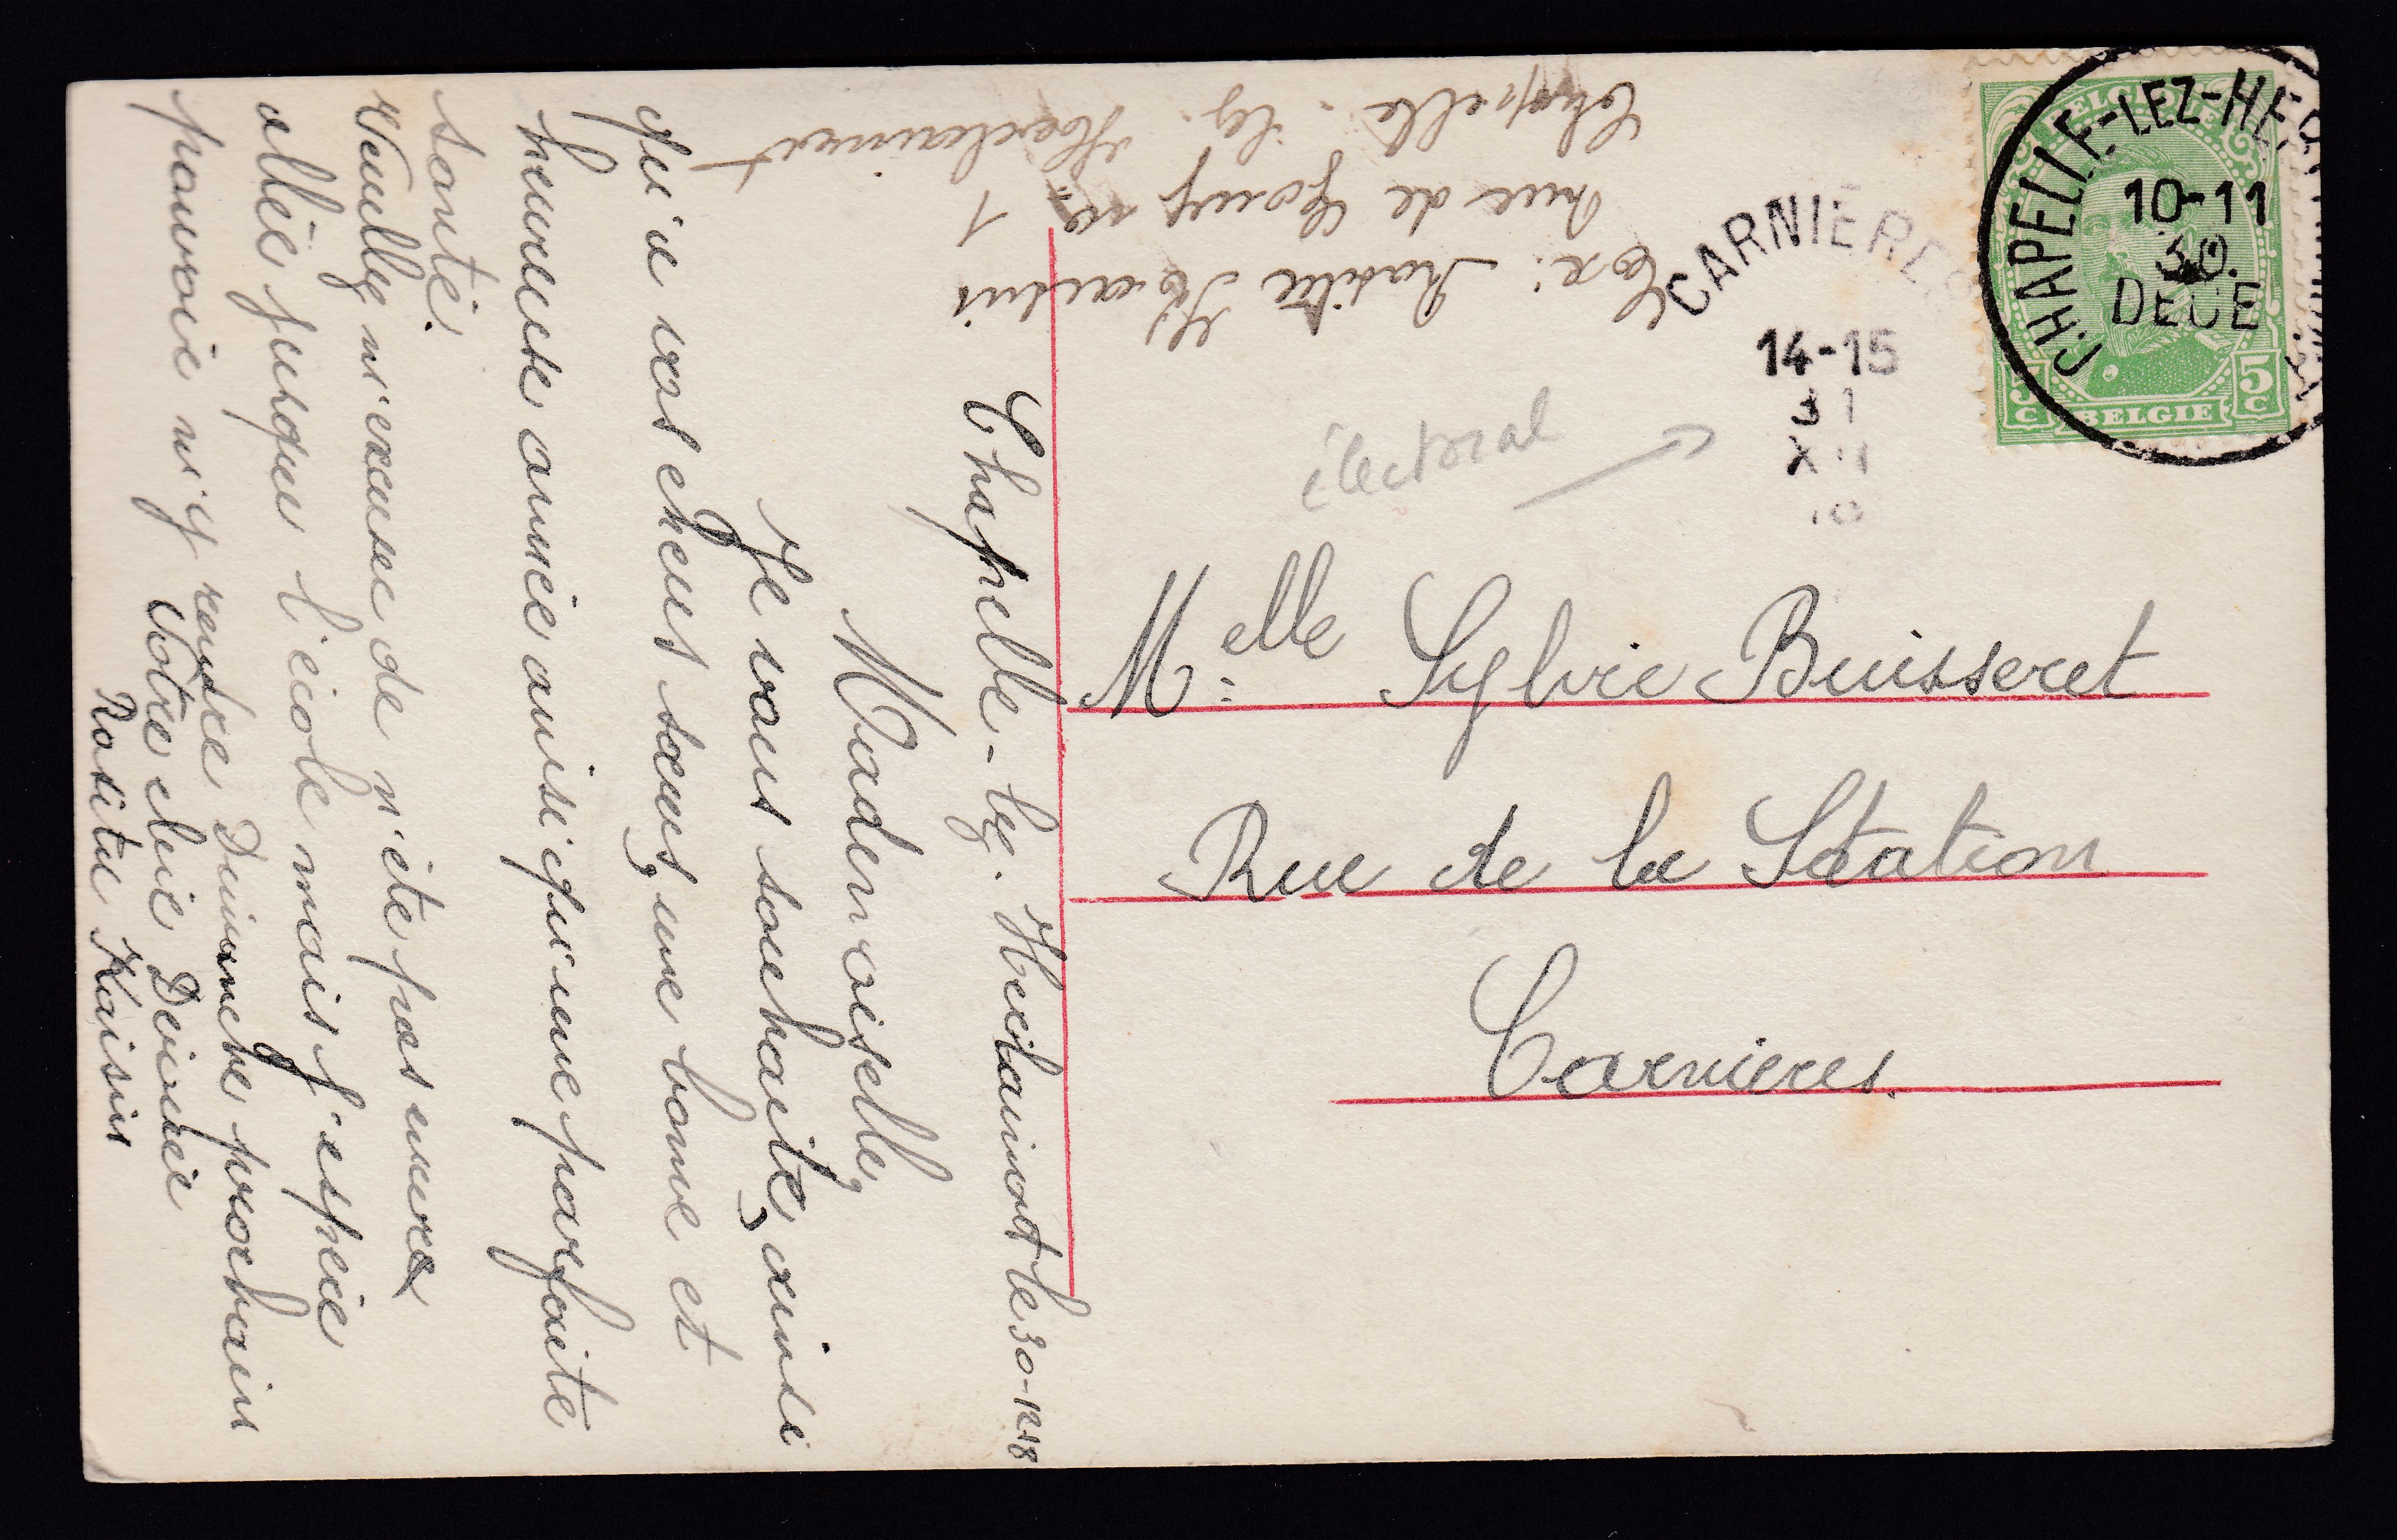 Exp: Rosita Kaisin
rue de Gouy no 1
Chapelle-lez-Herlaimont
CARNIERES
14-15
31
XII
BELGIQUE
5 C BELGIE 5 C
CHAPELLE-LEZ-HERLAIMONT
10-11
30
DECE
électoral
Melle Sylvie Buisseret
Rue de la Station
Carnieres.
Chapelle-lez-Herlaimont le 30-12-18
Mademoiselle,
Je vous souhaite, ainsi
qu'a vos cheres sœurs, une bonne et
heureuse année ainsi qu'une parfaite
santé.
Veuillez m'excuse de n'ête pas encore
allée jusque l'école mais j'espère
pouvoir m'y rendre Dimmche prochain
Votre chère Devinée
Rosita Kaisin